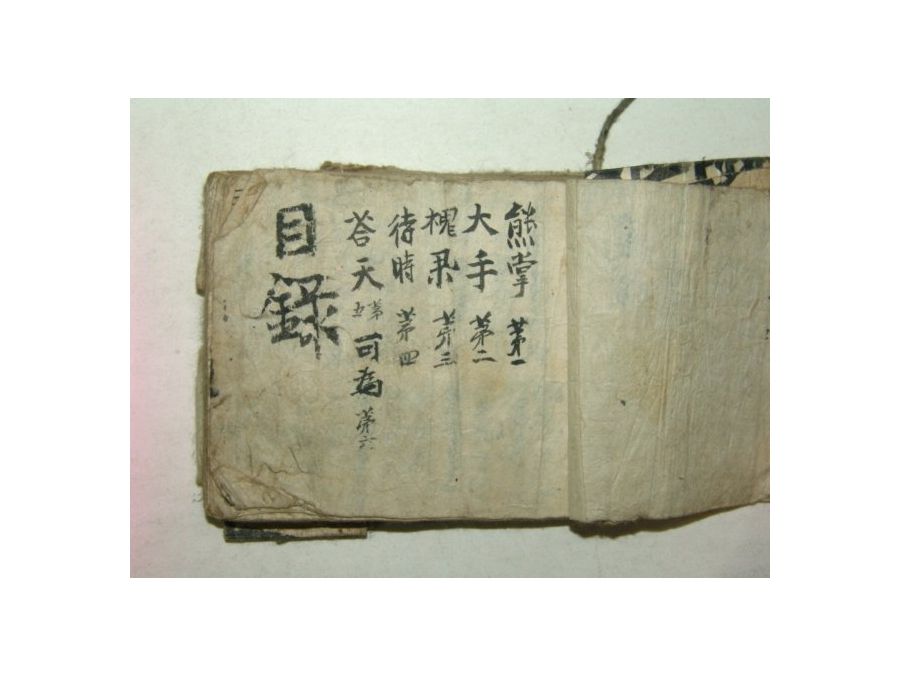 熊掌 第一
大手 第二
槐 第三
待時 第四
答天 第五 可為 第六
目錄